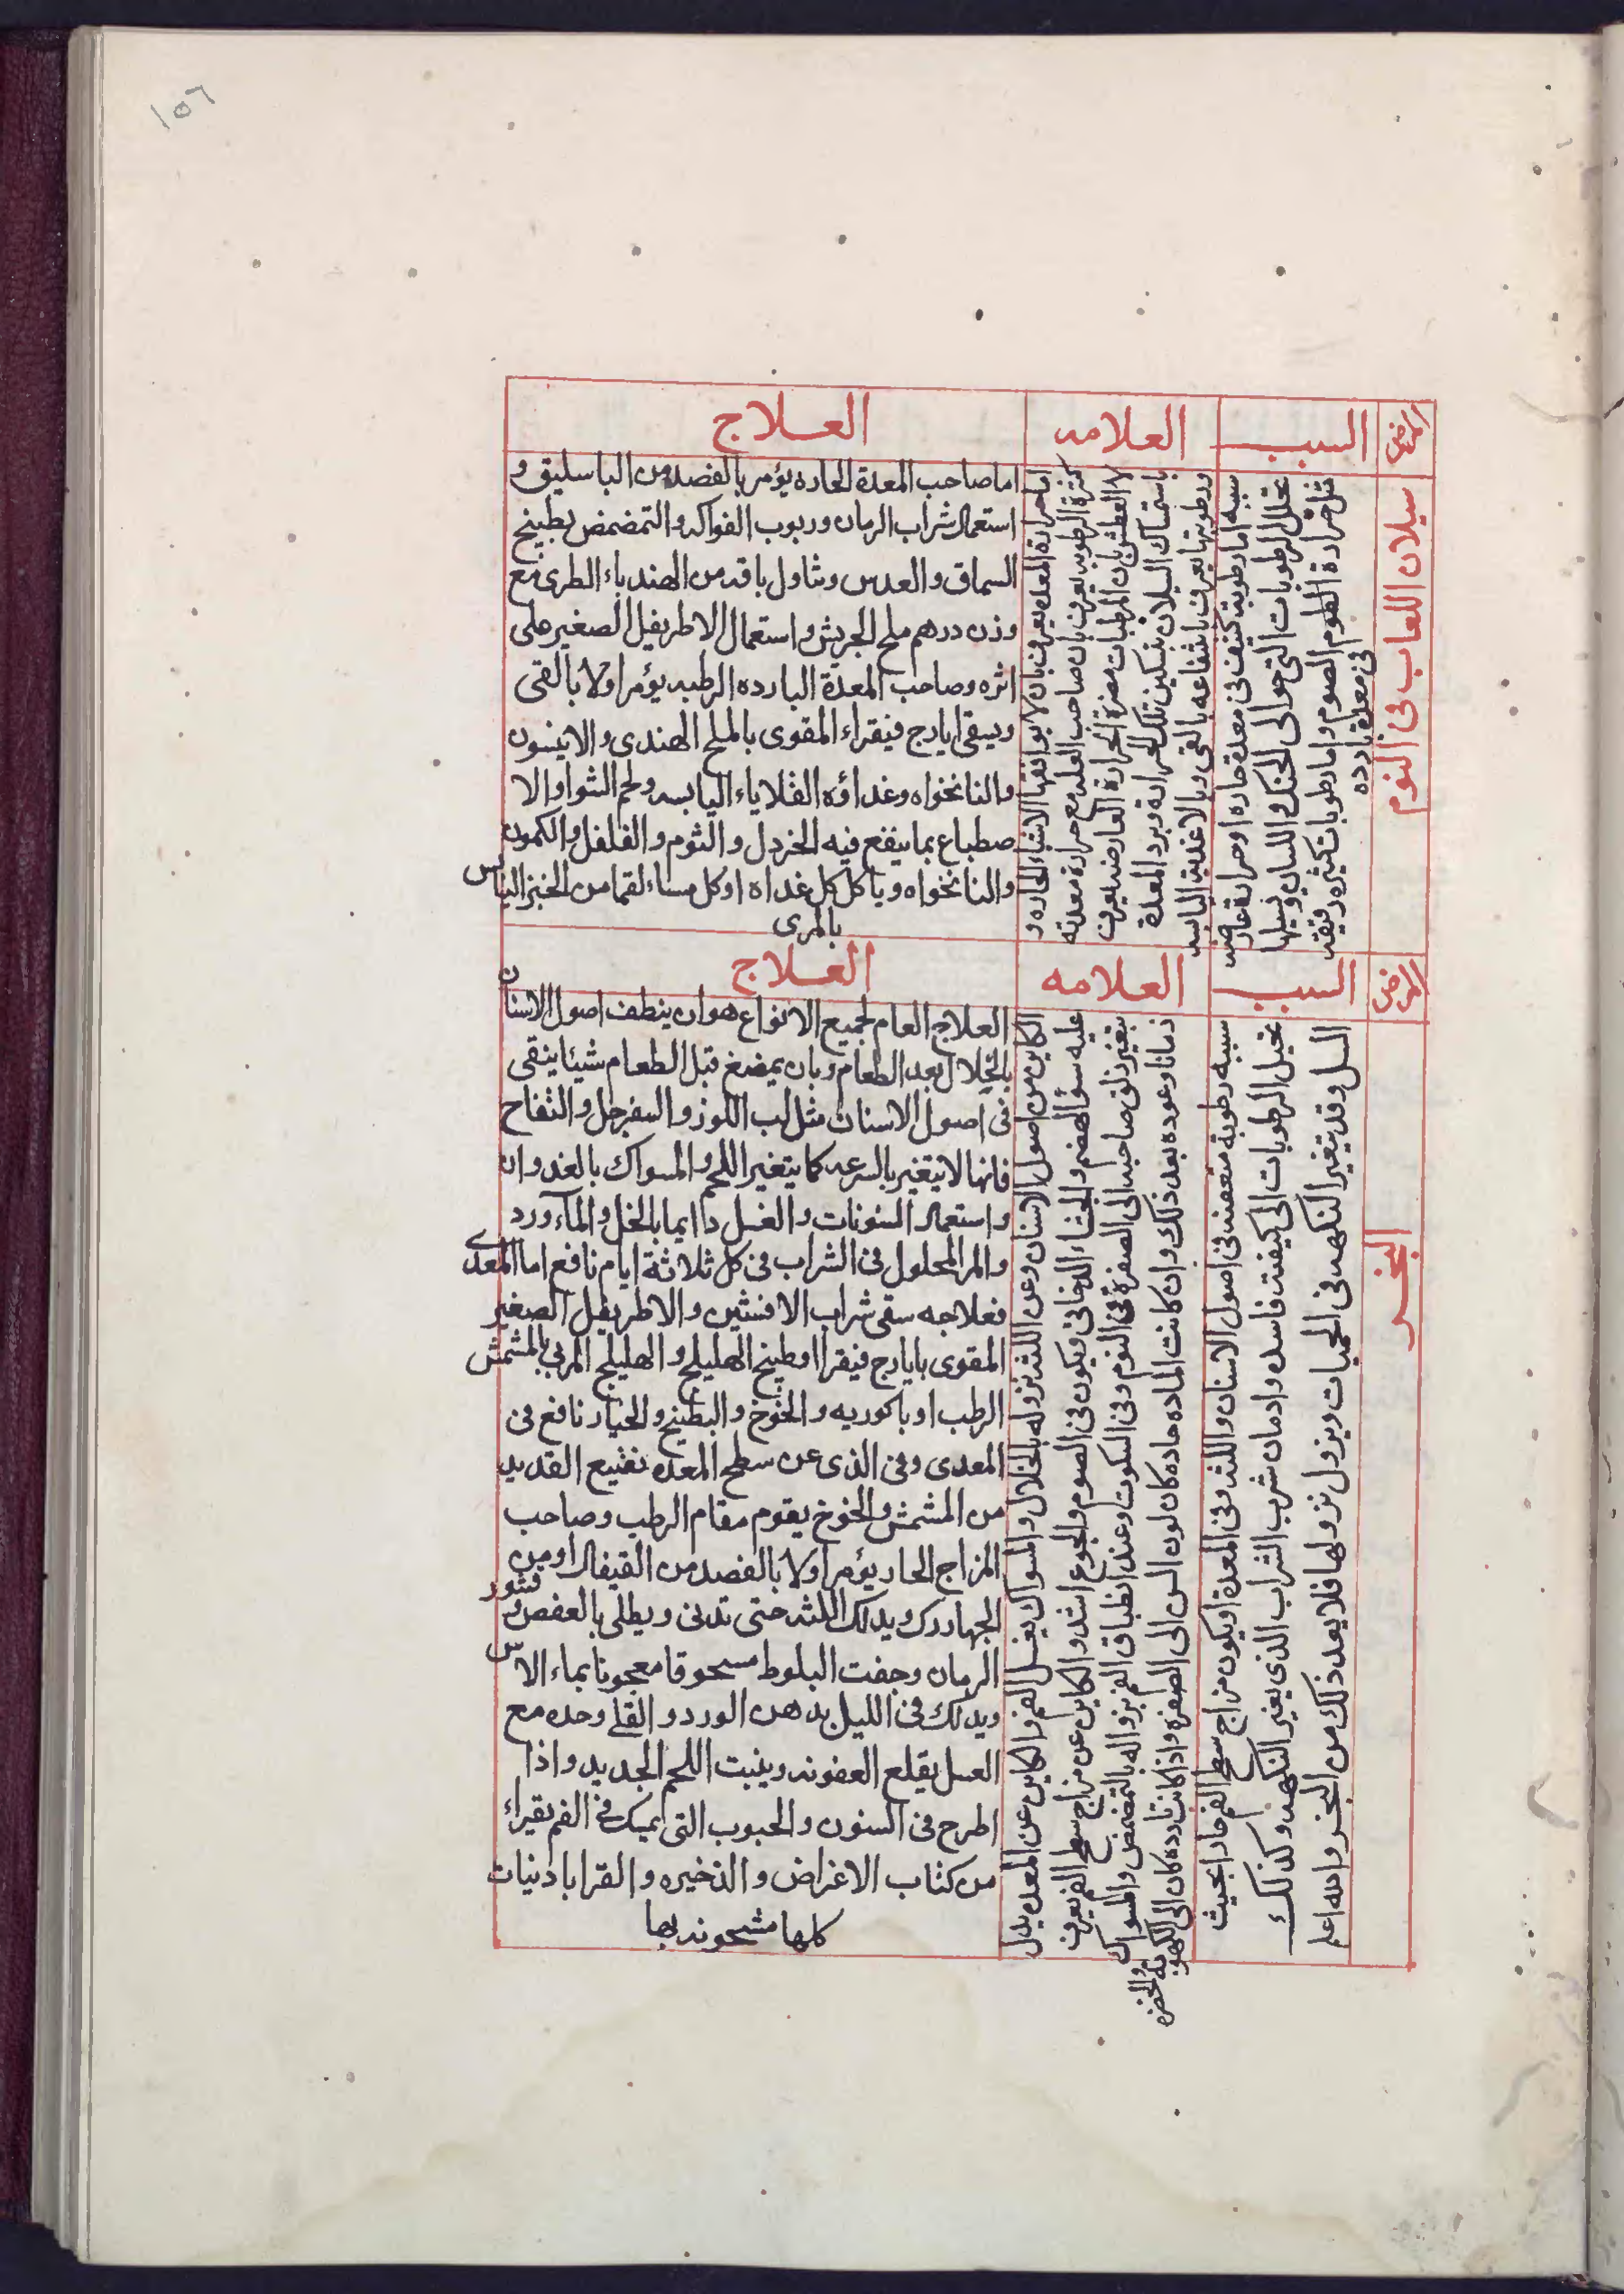 ١٥٦
المرض
السبب
العلامه
العلاج
سيلان اللعاب في النوم
سببه اما رطوبة كثيف في معدة حاره او حرارة عارضه
تحلل الرطوبات التي حوالى الحنك واللسان وتسيلها
مثل حرارة الطوم الصوم واما رطوبات كثيره رقيقه
في معدة بارده
اما حرارة المعدة يعرف بان لا يوافقها الاشياء الحاره و
كثرة الرطوبه يعرف بان صاحب العله مع حرارة معدته
لا العطش بان المرطبات مضرة الحرارة العارضه يعرف
باستمساك السيلان بتسكين تلك الحرارة وبرد المعدة
ورطوبتها يعرف بانتفاعه بالقى وبالاغذية اليابسه
اما صاحب المعدة الحاره يؤمر بالفصد من الباسليق و
استعمال شراب الرمان وربوب الفواكه والتمضمض بطبيخ
السماق والعدس وتناول باقه من الهندباء الطرى مع
وزن درهم ملح الجريش واستعمال الاطريفل الصغير على
اثره وصاحب المعدة البارده الرطبه يؤمر اولا بالقى
ويسقى ايارج فيقراء المقوى بالملح الهندى والانيسون
والنانخواه وغداؤه القلاياء اليابسه ولحم الشواوالا
صطباع بما ينفع فيه الخردل والثوم والفلفل والكمون
والنانخواه وياكل كل غداة او كل مساء لقما من الخبز اليابس
بالمرى
المرض
السبب
العلامه
العلاج
البخر
سببه رطوبة متعفنه في اصول الاسنان واللثه وفي المعدة او يكون مزاج سطح الفم حارا بحيث
تحيل الرطوبات الى كيفيت فاسده وادمان شرب الشراب الذي يغير النكهه وكذلك
السل وقد يتغير النكهه في الحميات ويزول نزولها فلا يعد ذلك من البخر والله اعلم
الكاين من اصول الاسنان وعن اللثه نزوله بالخلال والسواك بغسل الفم والكاين عن المعده يدل
عليه سؤ الهضم والجشاء الدخاني ويكون في الصوم والجوع اشد والكاين عن مزاج سطح الفم يعرف
بتغير ذلق صاحبه الى الصفرة في النوم وفي السكوت وعند انطباق الفم بزواله بالتمضمض والسواك
زمانا وعوده بعد ذلك وان كانت الماده حاده كان لون السن الى الصفرة واذا كانت بارده كان الى الكهوبة
والخضره
العلاج العام لجميع الانواع هو ان ينظف اصول الاسنان
بالخلال بعد الطعام وبان يمضغ قبل الطعام شيئا ينقى
في اصول الاسنان مثل لب اللوز والسفرجل والتفاح
فانها لا يتغير بالسرعه كما يتغير اللحم والسواك بالغدوان
واستعمال السنونات والغسل دايما بالخل والماء ورد
والمر المحلول في الشراب في كل ثلاثة ايام نافع اما المعدى
فعلاجه سقى شراب الافسنثين والاطريفل الصغير
المقوى بايارج فيقرا او طبيخ الهليلج والهليلج المربى بالمشمش
الرطب او باكوريه والخوخ والبطيخ والخيار نافع في
المعدى وفي الذى عن سطح المعده نقيع القديد
من المشمش والخوخ يقوم مقام الرطب وصاحب
المزاج الحار يؤمر اولا بالفصد من القيفال او من
الجهاررك ويدلك اللثه حتى تدنى ويطلى بالعفص وقشور
الرمان وجفت البلوط مسحوقا معجونا بماء الاس
ويدلك في الليل بدهن الورد والقلى وحده مع
العسل يقلع العفونه وينبت اللحم الجديد واذا
اطرح في السنون والحبوب التى يمسك في الفم يقراء
من كتاب الاغراض والذخيره والقراباذنيات
كلها مشحونه بها